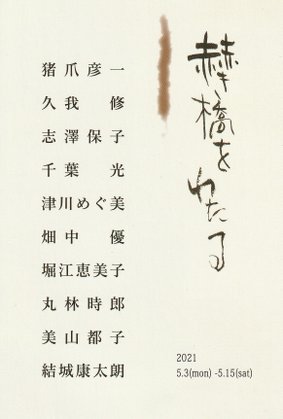 赫い橋をわたる
猪爪彦一
久我 修
志澤保子
千葉 光
津川めぐ美
畑中 優
堀江恵美子
丸林時郎
美山都子
結城康太朗
2021
5.3(mon) -5.15(sat)